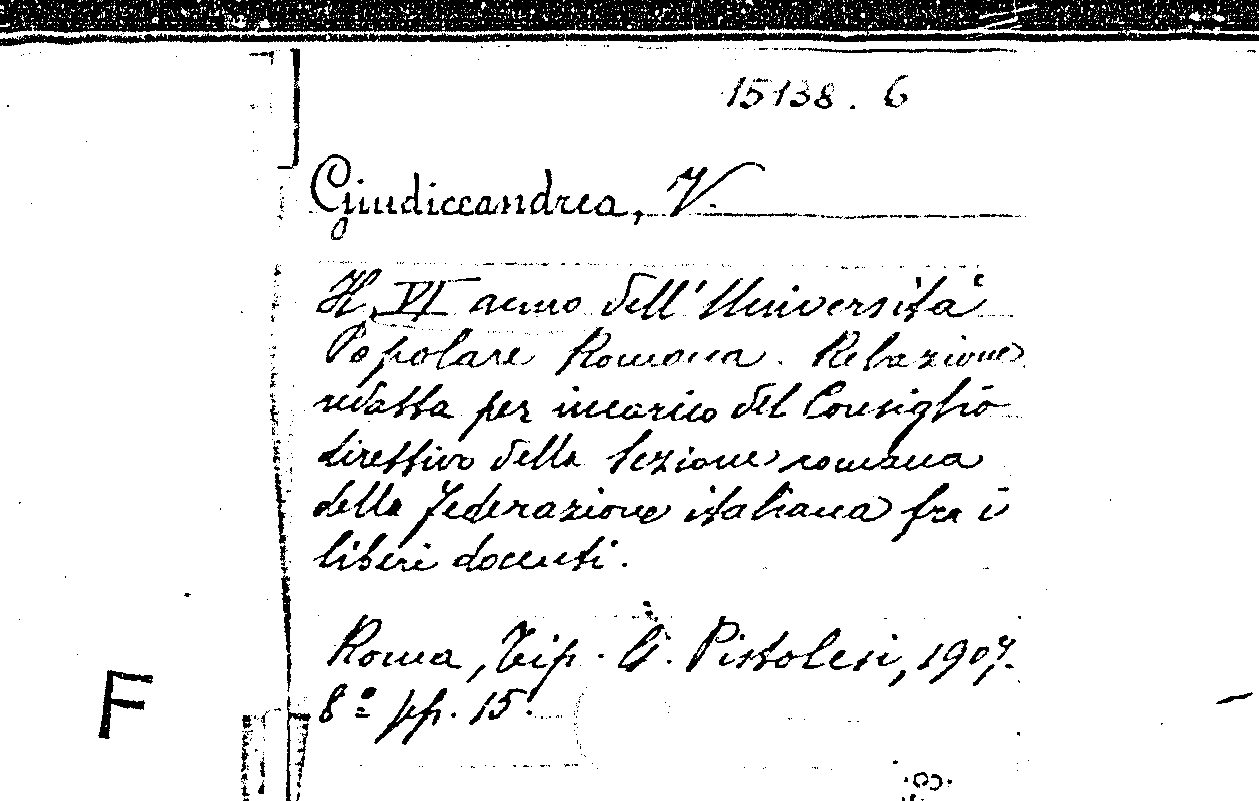 15138. 6
Giudiceandrea, V.
Il VI anno dell'Università
Popolare Romana. Relazione
redatta per incarico del Consiglio
direttivo della Sezione romana
della Federazione italiana fra i
liberi docenti.
Roma, Tip. G. Pistolesi, 1907.
8º pp. 15.
F